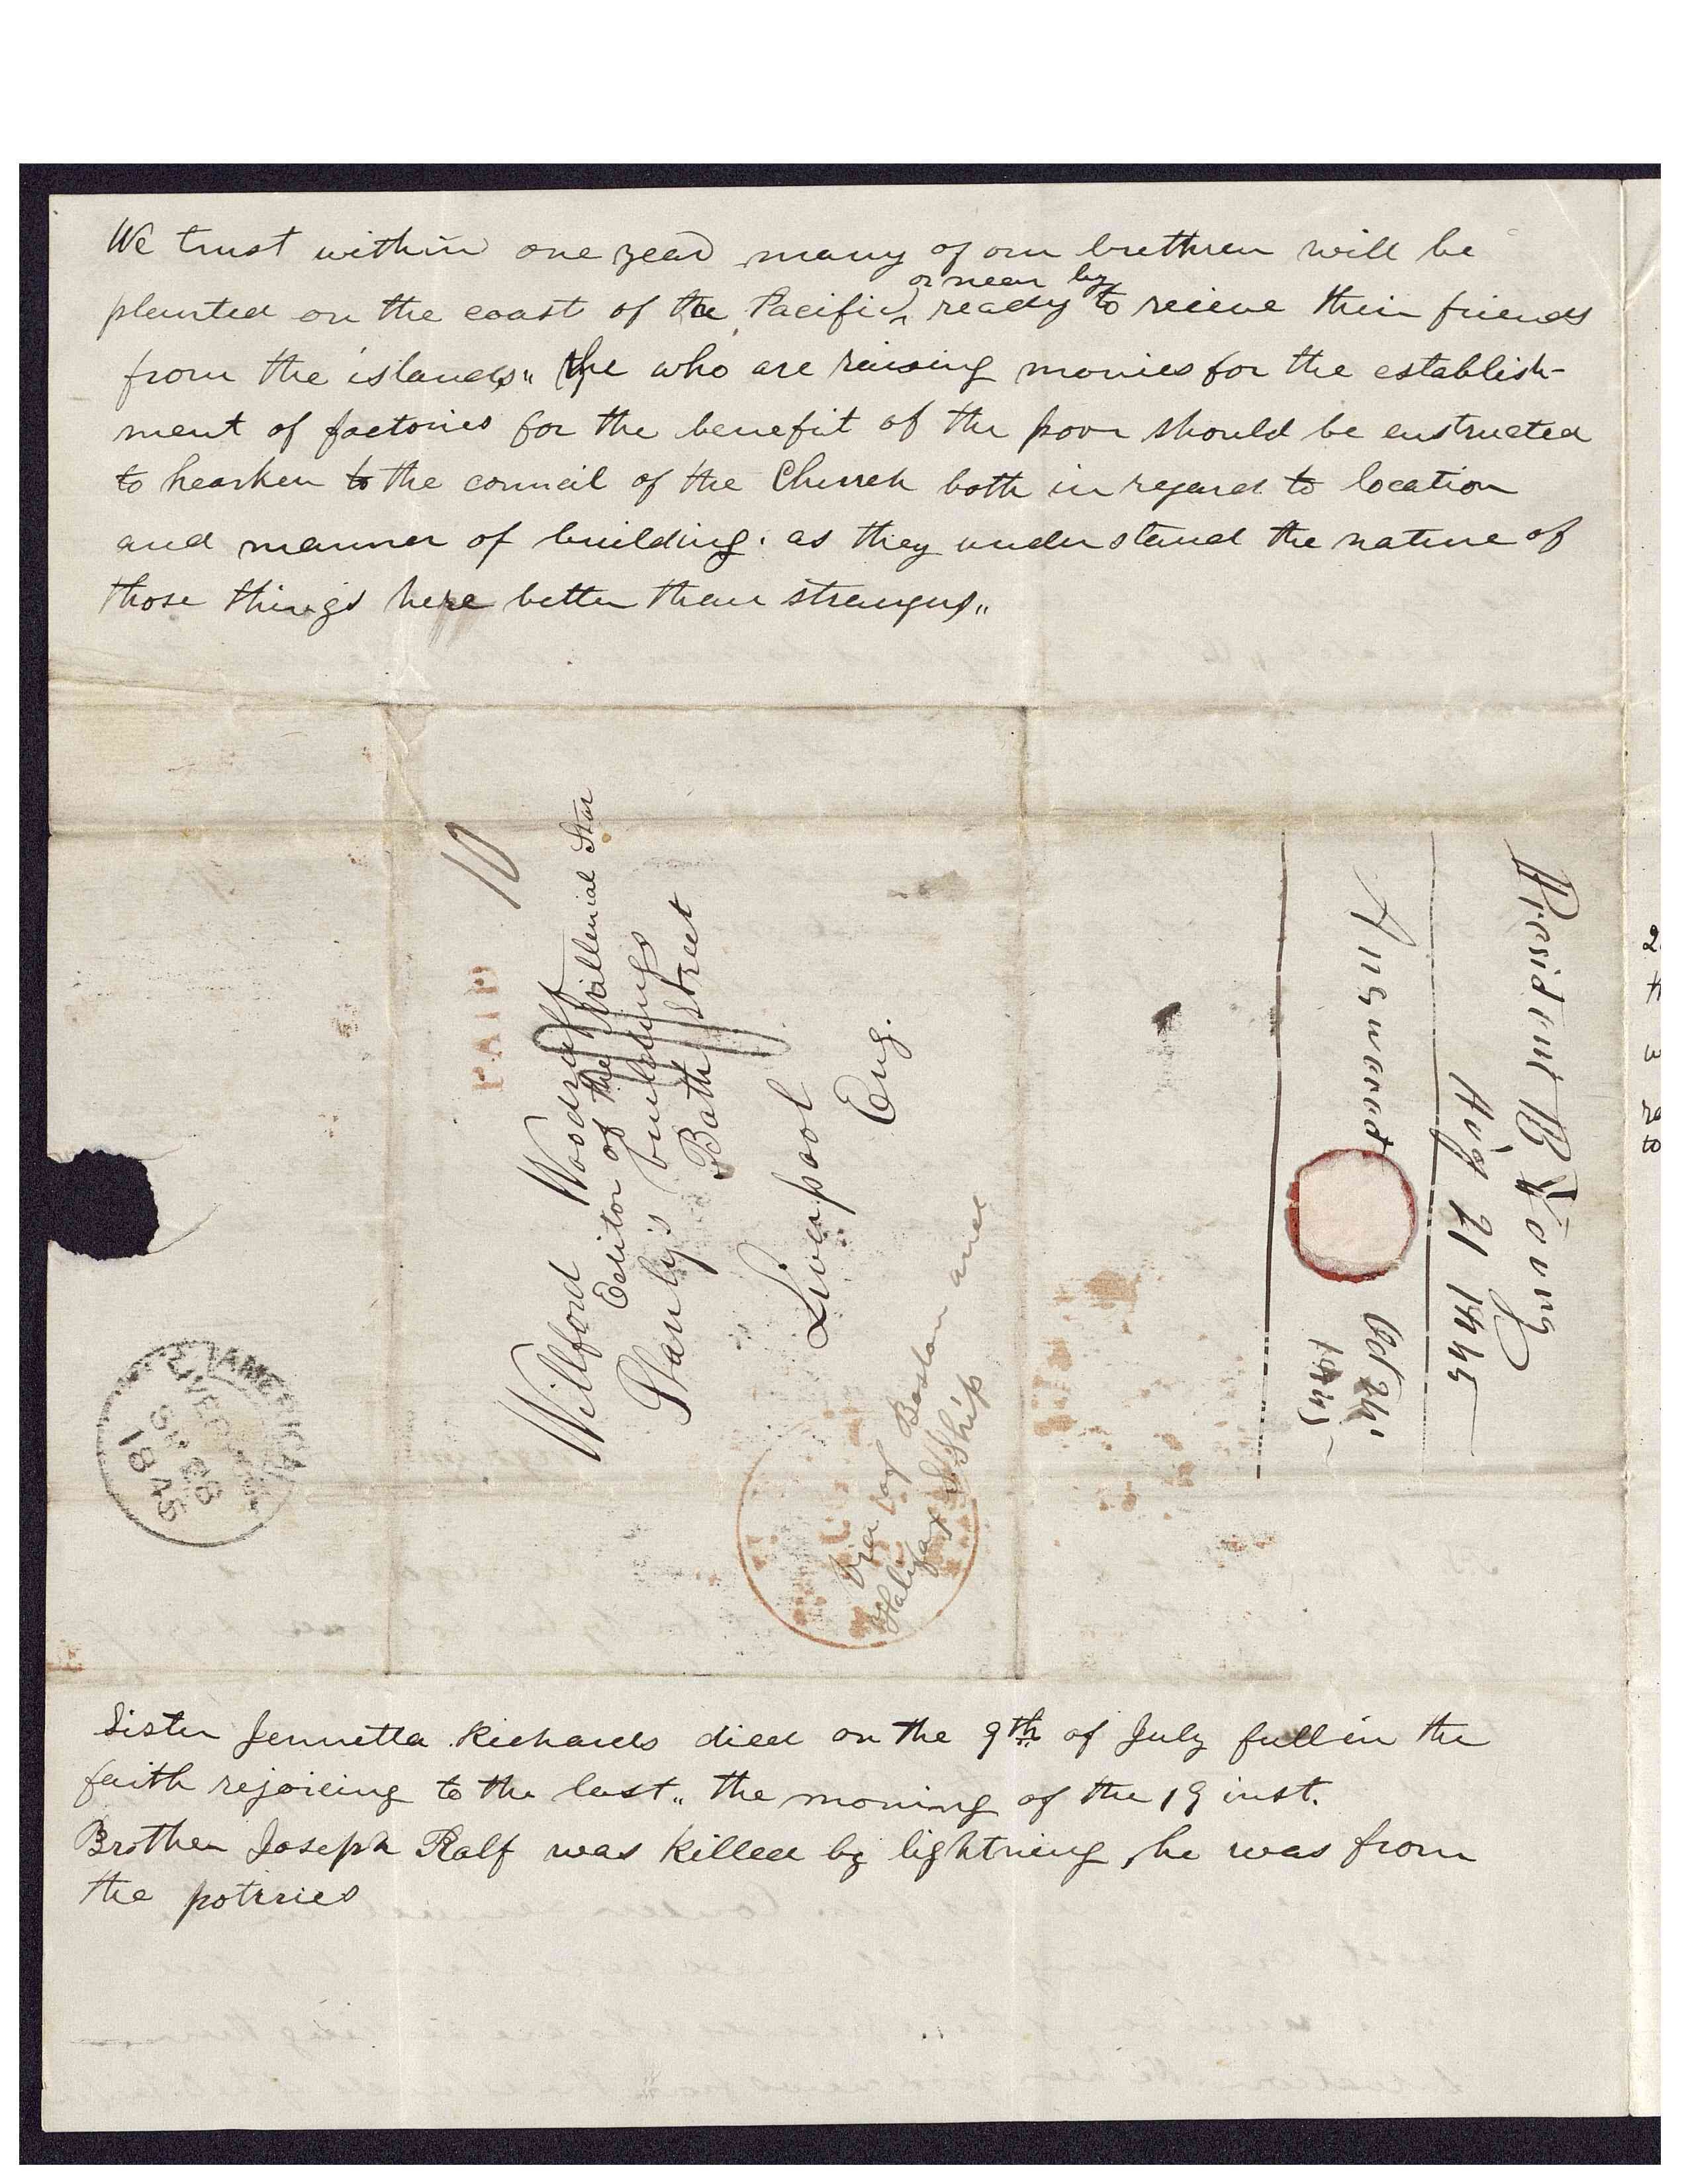 We trust within one year many of our brethren will be
or near by
planted on the coast of the Pacific, ready to recieve their friends
from the islands" the who are raising monies for the establish-
ment of factories for the benefit of the poor should be enstructed
to hearken to the council of the Church both in regard to location
and manner of building. as they understand the nature of
those things here better than strangers"
10
PAID
Willford Woodruff
Editor of the Millenial Star
Stanly's buildings
Bath Street
Liverpool
Eng.
via of Boston and
Halifax S Ship
AMERICA
LIVERPOOL
1845
President B Young
Aug 21 1845
Answared Oct 2
Sister Jennetta Richards died on the 9th of July full in the
faith rejoicing to the last" the morning of the 19 inst.
Brother Joseph Ralf was killed by lightning, he was from
the potries